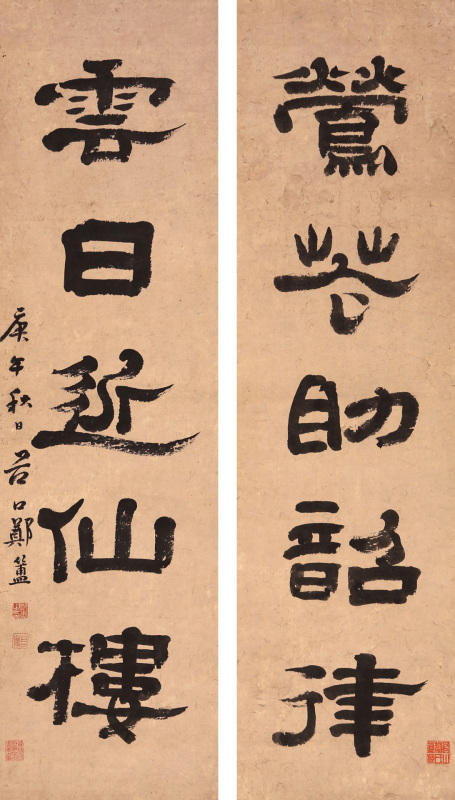 鶯花助韶律
雲日近仙樓
庚午秋日谷口鄭簠